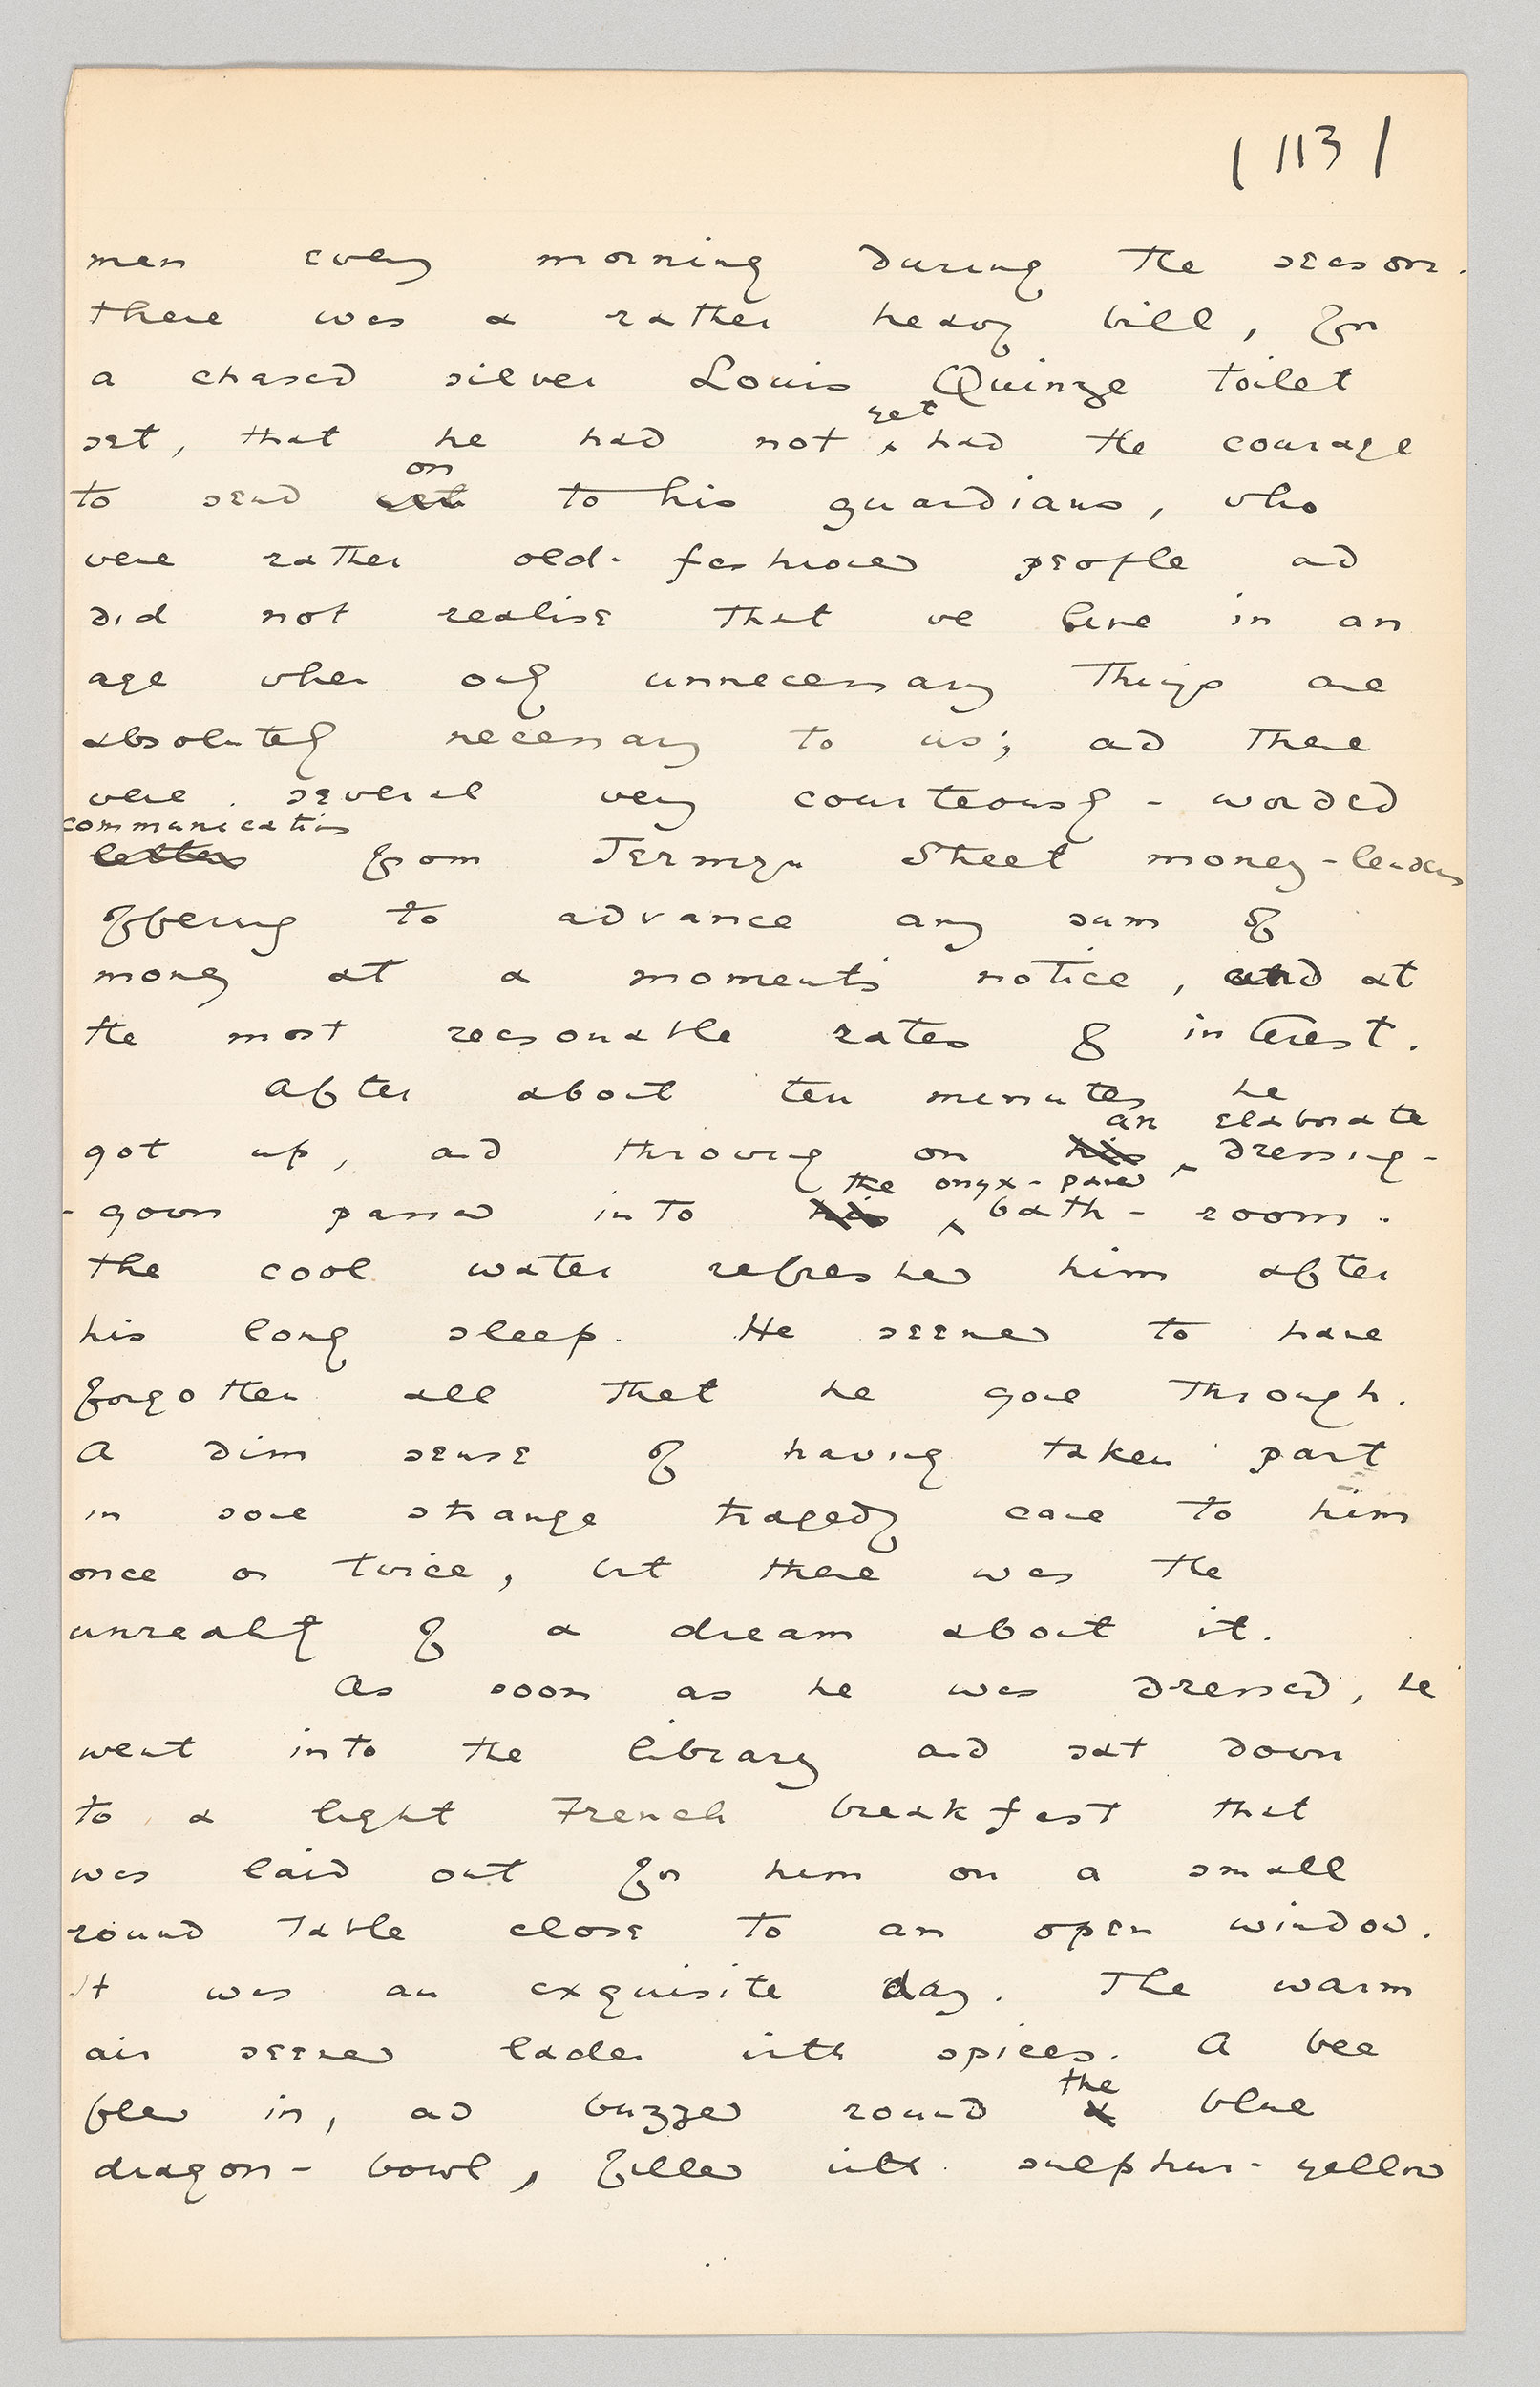 ( 113 )
men every morning during the season.
There was a rather heavy bill, for
a chased silver Louis Quinze toilet
yet
set, that he had not ^ had the courage
on
to send to his guardians, who
were rather old-fashioned people and
did not realise that we live in an
age when only unnecessary things are
absolutely necessary to us; and there
were several very courteously-worded
communications
letters from Jermyn Street money-lenders
offering to advance any sum of
money at a moment's notice, and at
the most reasonable rates of interest.
After about ten minutes he
an elaborate
got up, and throwing on his ^ dressing-
the onyx-paved
-gown passed into his ^ bath-room.
The cool water refreshed him after
his long sleep. He seemed to have
forgotten all that he gone through.
A dim sense of having taken part
in some strange tragedy came to him
once or twice, but there was the
unreality of a dream about it.
As soon as he was dressed, he
went into the library and sat down
to a light French breakfast that
was laid out for him on a small
round table close to an open window.
It was an exquisite day. The warm
air seemed laden with spices. A bee
the
flew in, and buzzed round a blue
dragon-bowl, filled with sulphur-yellow